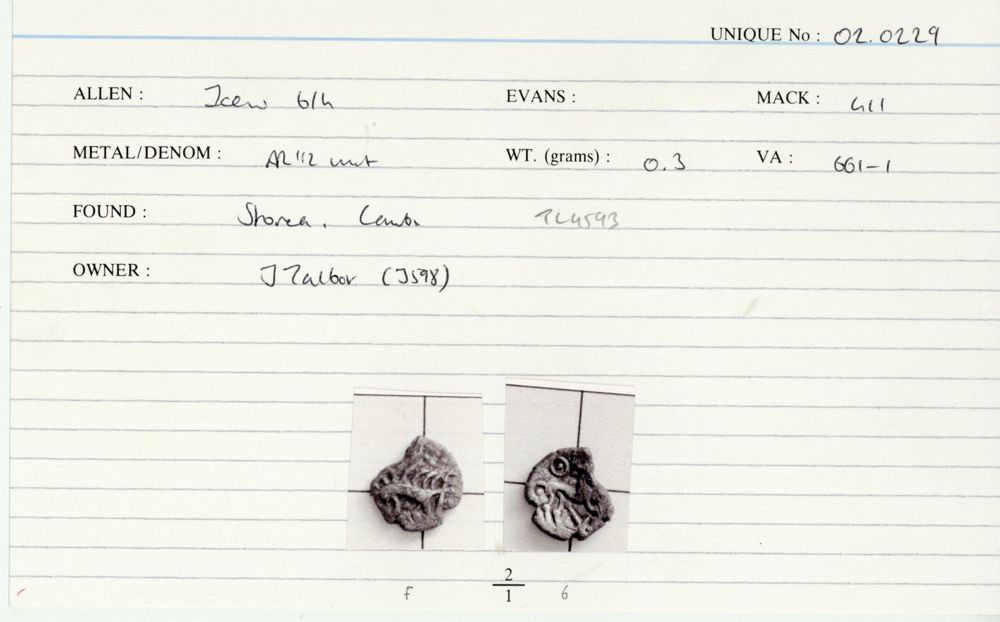 UNIQUE No : 02.0229
ALLEN : Iceni b/h EVANS : MACK : 411
METAL/DENOM : AR 1/2 unit WT. (grams) : 0.3 VA : 661-1
FOUND : TL4593
OWNER : J Talbot (J598)
2
f 6
1